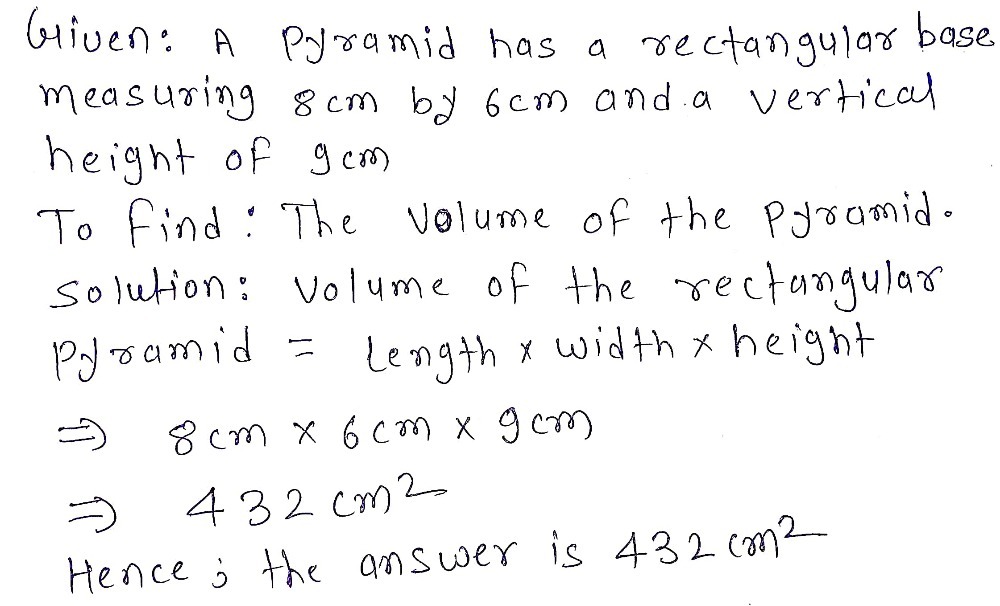 Given: A Pyramid has a rectangular base
measuring 8cm by 6cm and a vertical
height of 9cm
To find: The Volume of the pyramid.
solution: volume of the rectangular
pyramid = length x width x height
⇒ 8cm x 6cm x 9cm
⇒ 432 cm²
Hence; the answer is 432 cm²